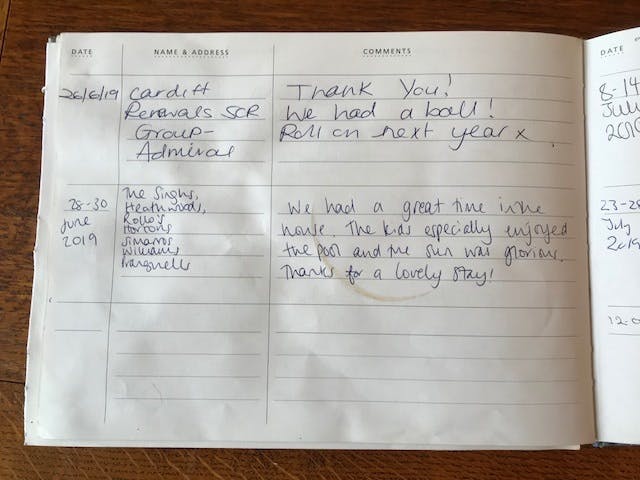 DATE NAME & ADDRESS COMMENTS
26/6/19 Cardiff Thank You!
Renewals SCR We had a ball!
Group- Roll on next year x
Admiral
28-30 The Singhs, We had a great time in the
June Heathwoods, house. The kids especially enjoyed
2019 Rollo's the pool and the sun was glorious.
Hortons Thanks for a lovely stay!
Simarros
Williams
Pranguells
DATE
8-14
July
2019
23-28
July
2019